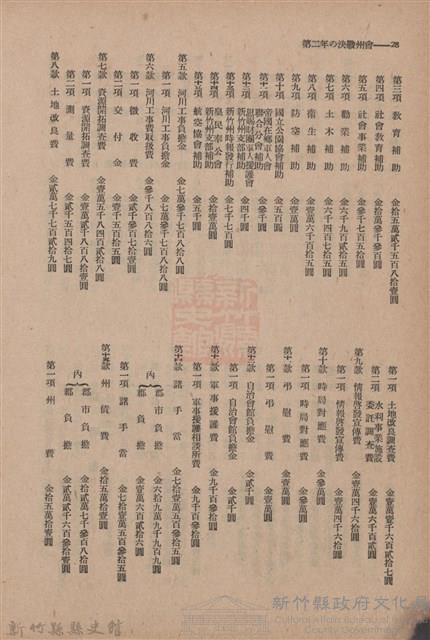 28——會州戰決の年二第
第三項　教育補助　金拾五萬貳千五百八拾壹圓
第四項　社會教育補助　金拾萬參千參百圓
第五項　社會事業補助　金參千七百五拾圓
第六項　勸業補助　金六千九百貳拾參圓
第七項　土木補助　金六千四百七拾五圓
第八項　衞生補助　金壹萬六千百拾五圓
第九項　防空補助　金壹萬圓
第十項　國立公園協會補助　金五百圓
帝國在鄕軍人會聯合分會補助　金參千圓
恩賜財團軍人援護會新竹州支部補助　金四千圓
新竹州時報發行補助　金七千七百圓
皇民奉公會新竹州支部補助　金拾壹萬圓
航空協會補助　金五千圓
第五款　河川工事負擔金　金七萬參千七百八拾八圓
第一項　河川工事負擔金　金七萬參千七百八拾八圓
第六款　河川工事費取扱費　金參千八百八拾六圓
第一項　徵收費　金貳千參百七拾壹圓
第二項　交付金　金壹千五百拾五圓
第七款　資源開拓調查費　金壹萬五千八百四拾七圓
第一項　資源開拓調查費　金壹萬貳千八百八拾圓
第二項　測量費　金貳千五百四拾七圓
第八款　土地改良費　金貳萬七千七百貳拾九圓
第一項　土地改良調查費　金壹萬壹千六百貳拾七圓
第二項　水利事業施設委託調查費　金壹萬六千百貳圓
第九款　情報啓發宣傳費　金壹萬四千六拾圓
第一項　情報啓發宣傳費　金壹萬四千六拾圓
第十款　時局對應費　金參萬圓
第一項　時局對應費　金參萬圓
弔慰費　金壹萬圓
第一項　弔慰費　金壹萬圓
自治會館負擔金　金貳千圓
第一項　自治會館負擔金　金貳千圓
軍事援護費　金九千百參拾圓
第一項　軍事援護相談所費　金九千百參拾圓
諸手當　金七拾壹萬五百參拾五圓
第一項　諸手當　金七拾壹萬五百參拾五圓
內　州負擔　金六拾九萬九千九百九圓
郡負擔　金壹萬六百貳拾六圓
州債費　金拾五萬拾壹圓
內　郡市負擔　金拾貳萬七千參百八拾圓
郡負擔　金貳萬貳千六百參拾壹圓
第一項　州費　金拾五萬拾壹圓
新竹縣縣史館
新竹縣政府文化局
Cultural Affairs Bureau of Hsinchu County Government